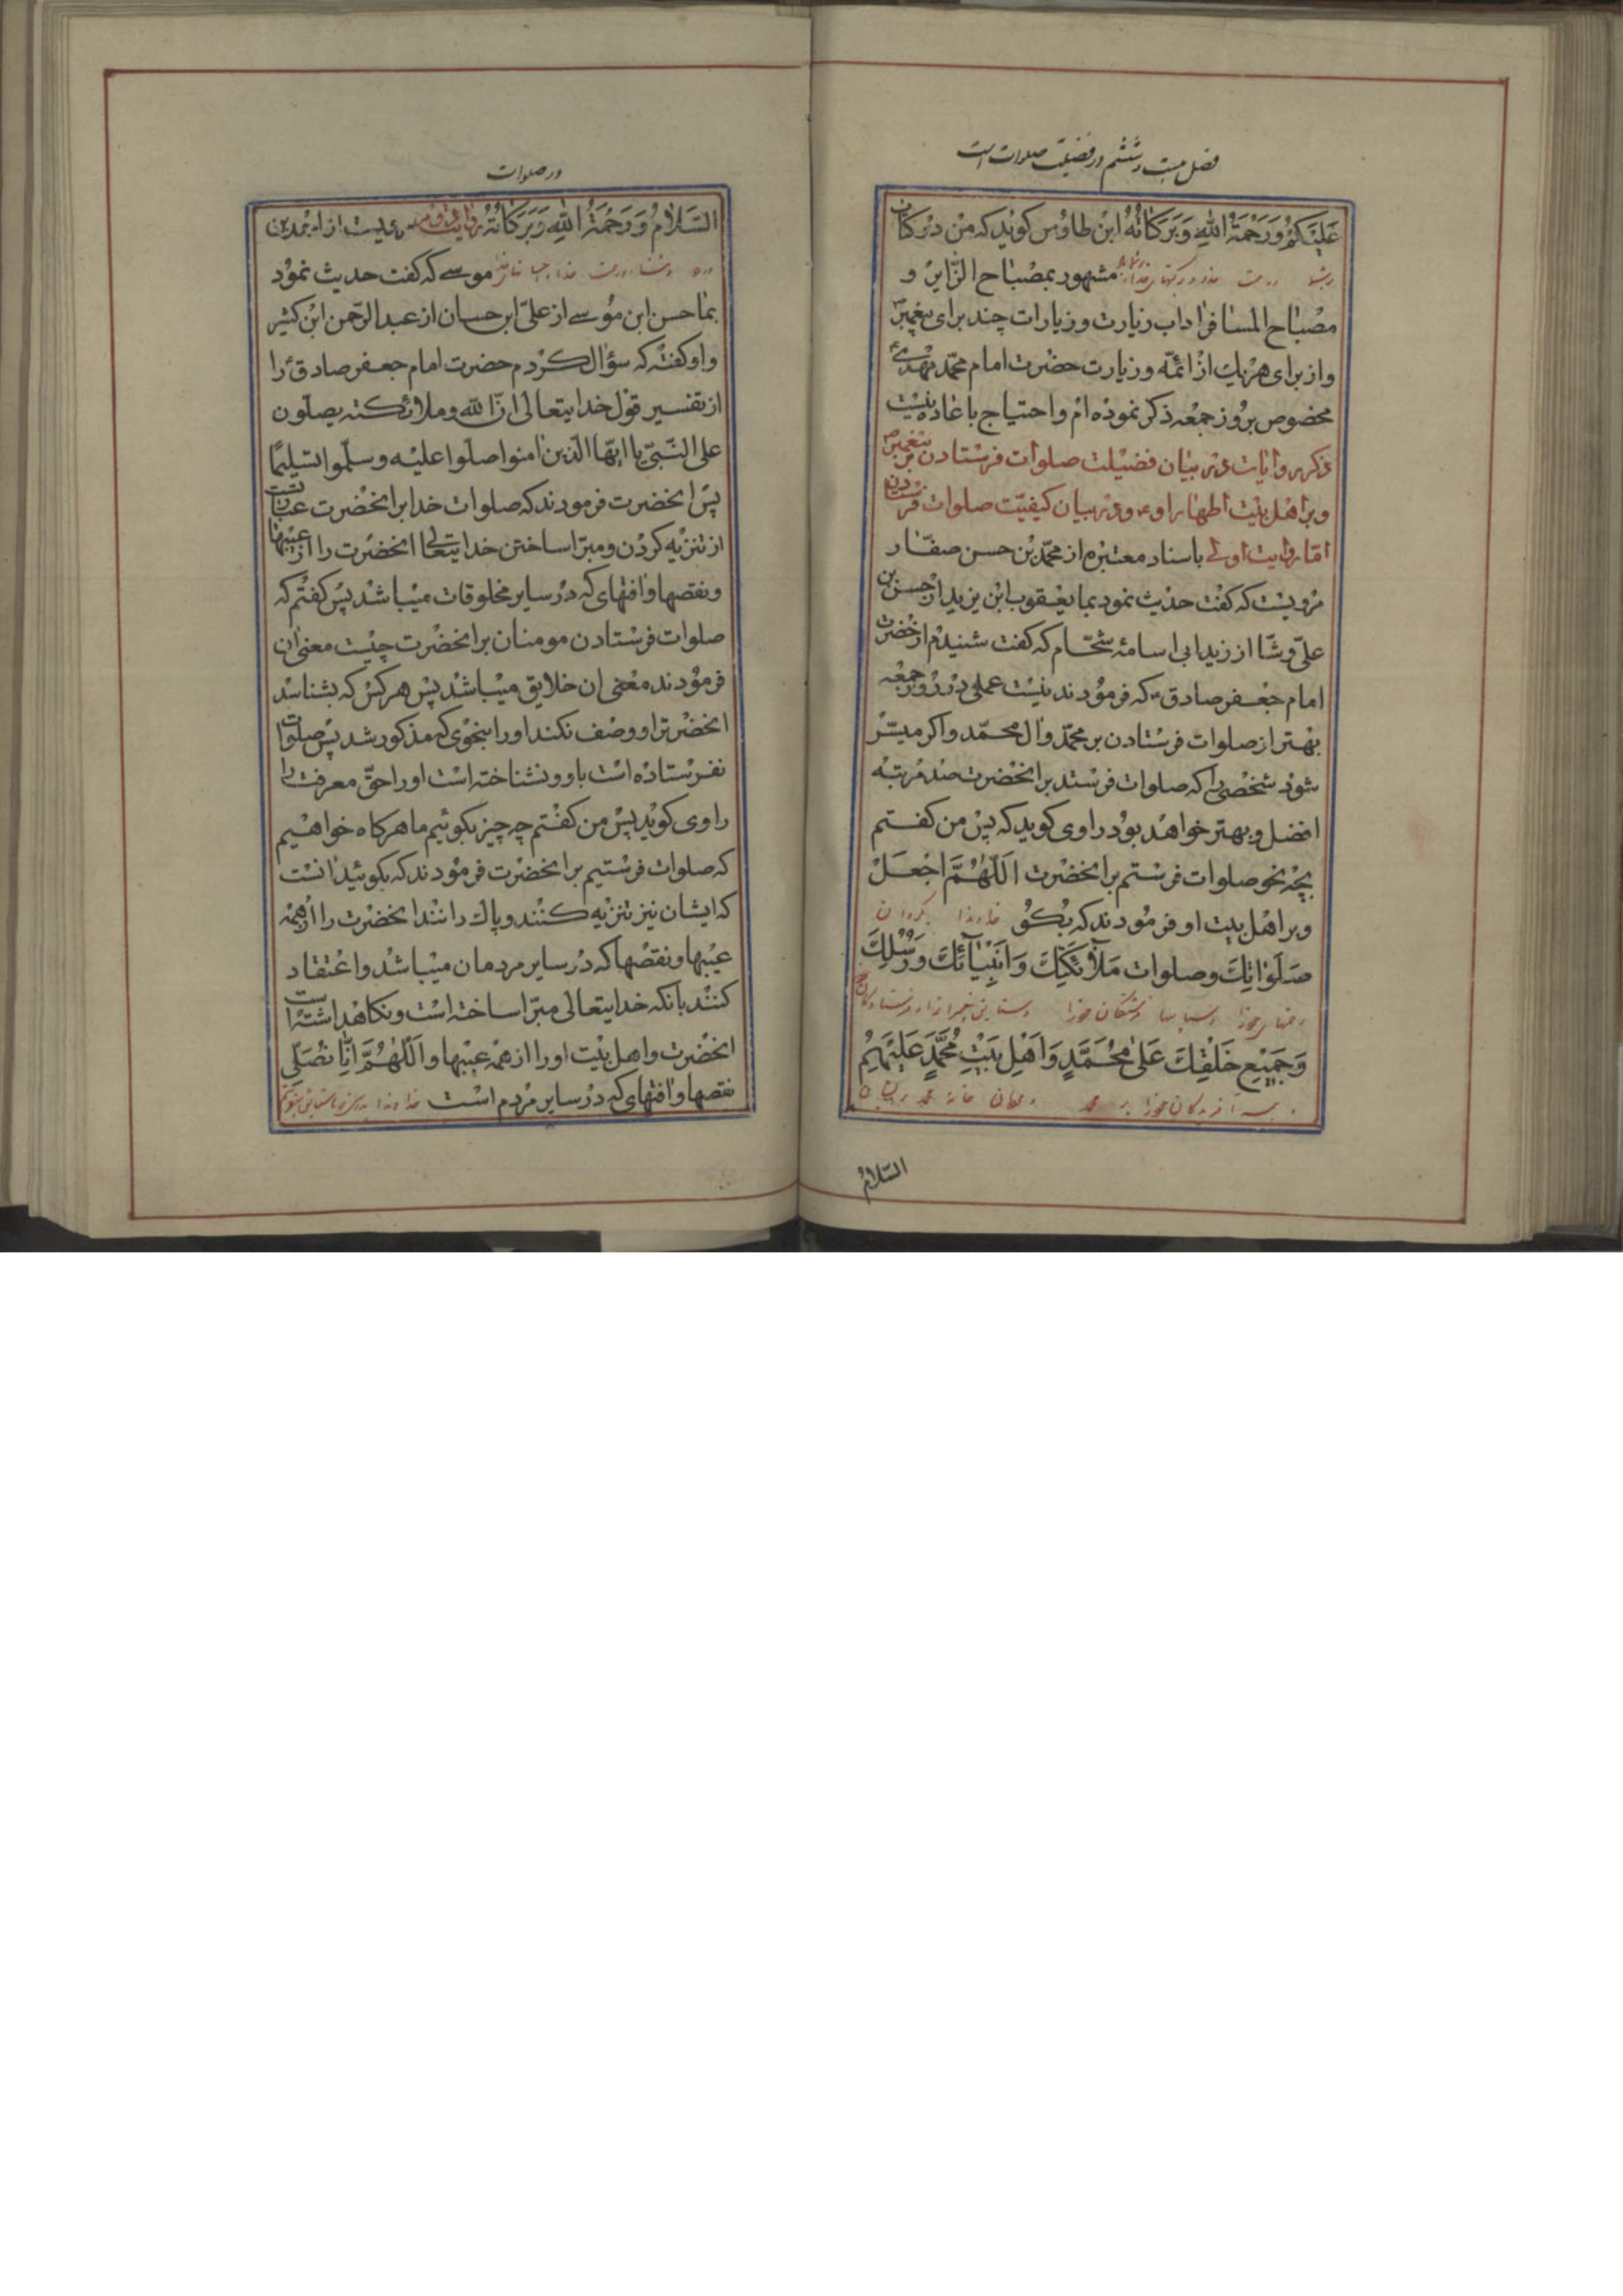 فصل بیست و ششم در فضیلت صلوات است
عَلَیْكُمْ وَرَحْمَةُ اللهِ وَبَرَكاتُهُ ابن طاوس كوید كه من در كتاب
مشهور بمصباح الزّایر و
مصباح المسافر اداب زیارت و زیارات چند برای پیغمبر ص
و از برای هر یك از ائمّه و زیارت حضرت امام محمّد مهدی ع
مخصوص بروز جمعه ذكر نموده ام و احتیاج باعاده نیست
ذكر روایات در بیان فضیلت صلوات فرستادن بر پیغمبر ص
و بر اهل بیت اطهار او ع و در بیان كیفیّت صلوات فرستادن
امّا روایت اولی باسناد معتبره از محمّد بن حسن صفّار
مرویست كه گفت حدیث نمود بما یعقوب ابن یزید از حسن بن
علی وشّا از زید ابی اسامه شحّام كه گفت شنیدم از حضرت
امام جعفر صادق ع كه فرمودند نیست عملی در روز جمعه
بهتر از صلوات فرستادن بر محمّد و ال محمّد و اكر میسّر
شود شخصی را كه صلوات فرستد بر انحضرت صد مرتبه
افضل و بهتر خواهد بود راوی كوید كه پس من كفتم
بچه نحو صلوات فرستم بر انحضرت اَللّهُمَّ اجْعَلْ
و بر اهل بیت او فرمودند كه بكو خداوندا بگردان
صَلَوٰاتِكَ وصلوات مَلآئِكَتِكَ وَاَنْبِیٰآئِكَ وَرُسُلِكَ
وَجَمِیْعِ خَلْقِكَ عَلیٰ مُحَمَّدٍ وَاَهْلِ بَیْتِ مُحَمَّدٍ عَلَیْهِمُ
و همه آفریدكان خود را بر محمد
السّلام
در صلوات
السَّلامُ وَرَحْمَةُ اللهِ وَبَرَكاتُهُ از احمد بن
موسی كه كفت حدیث نمود
بما حسن ابن موسی از علیّ ابن حسان از عبد الرّحمن ابن كثیر
و او كفته كه سؤال كردم حضرت امام جعفر صادق ع را
از تفسیر قول خدایتعالی انّ الله وملائكته یصلّون
علی النّبیّ یا ایّها الّذین امنوا صلّوا علیه وسلّموا تسلیمًا
پس انحضرت فرمودند كه صلوات خدا بر انحضرت عبارتست
از تنزیه كردن و مبرّا ساختن خدایتعالی انحضرت را از عیبها
و نقصها و افتهای كه در سایر مخلوقات میباشد پس كفتم كه
صلوات فرستادن مومنان بر انحضرت چیست معنی ان
فرمودند معنی ان خلایق میباشد پس هر كس كه بشناسد
انحضرترا و وصف نكند او را بنحوی كه مذكور شد پس صلوات
نفرستاده است باو و نشناخته است او را حقّ معرفت را
راوی كوید پس من كفتم چه چیز بكوئیم ما هركاه خواهیم
كه صلوات فرستیم بر انحضرت فرمودند كه بكوئید انست
كه ایشان نیز تنزیه كنند و پاك دانند انحضرت را از همه
عیبها و نقصها كه در سایر مردمان میباشد و اعتقاد
كنند بانكه خدایتعالی مبرّا ساخته است و نكاهداشته است
انحضرت و اهل بیت او را از همه عیبها و اَللّهُمَّ اِنّا نُصَلّی
نقصها و افتهای كه در سایر مردم است